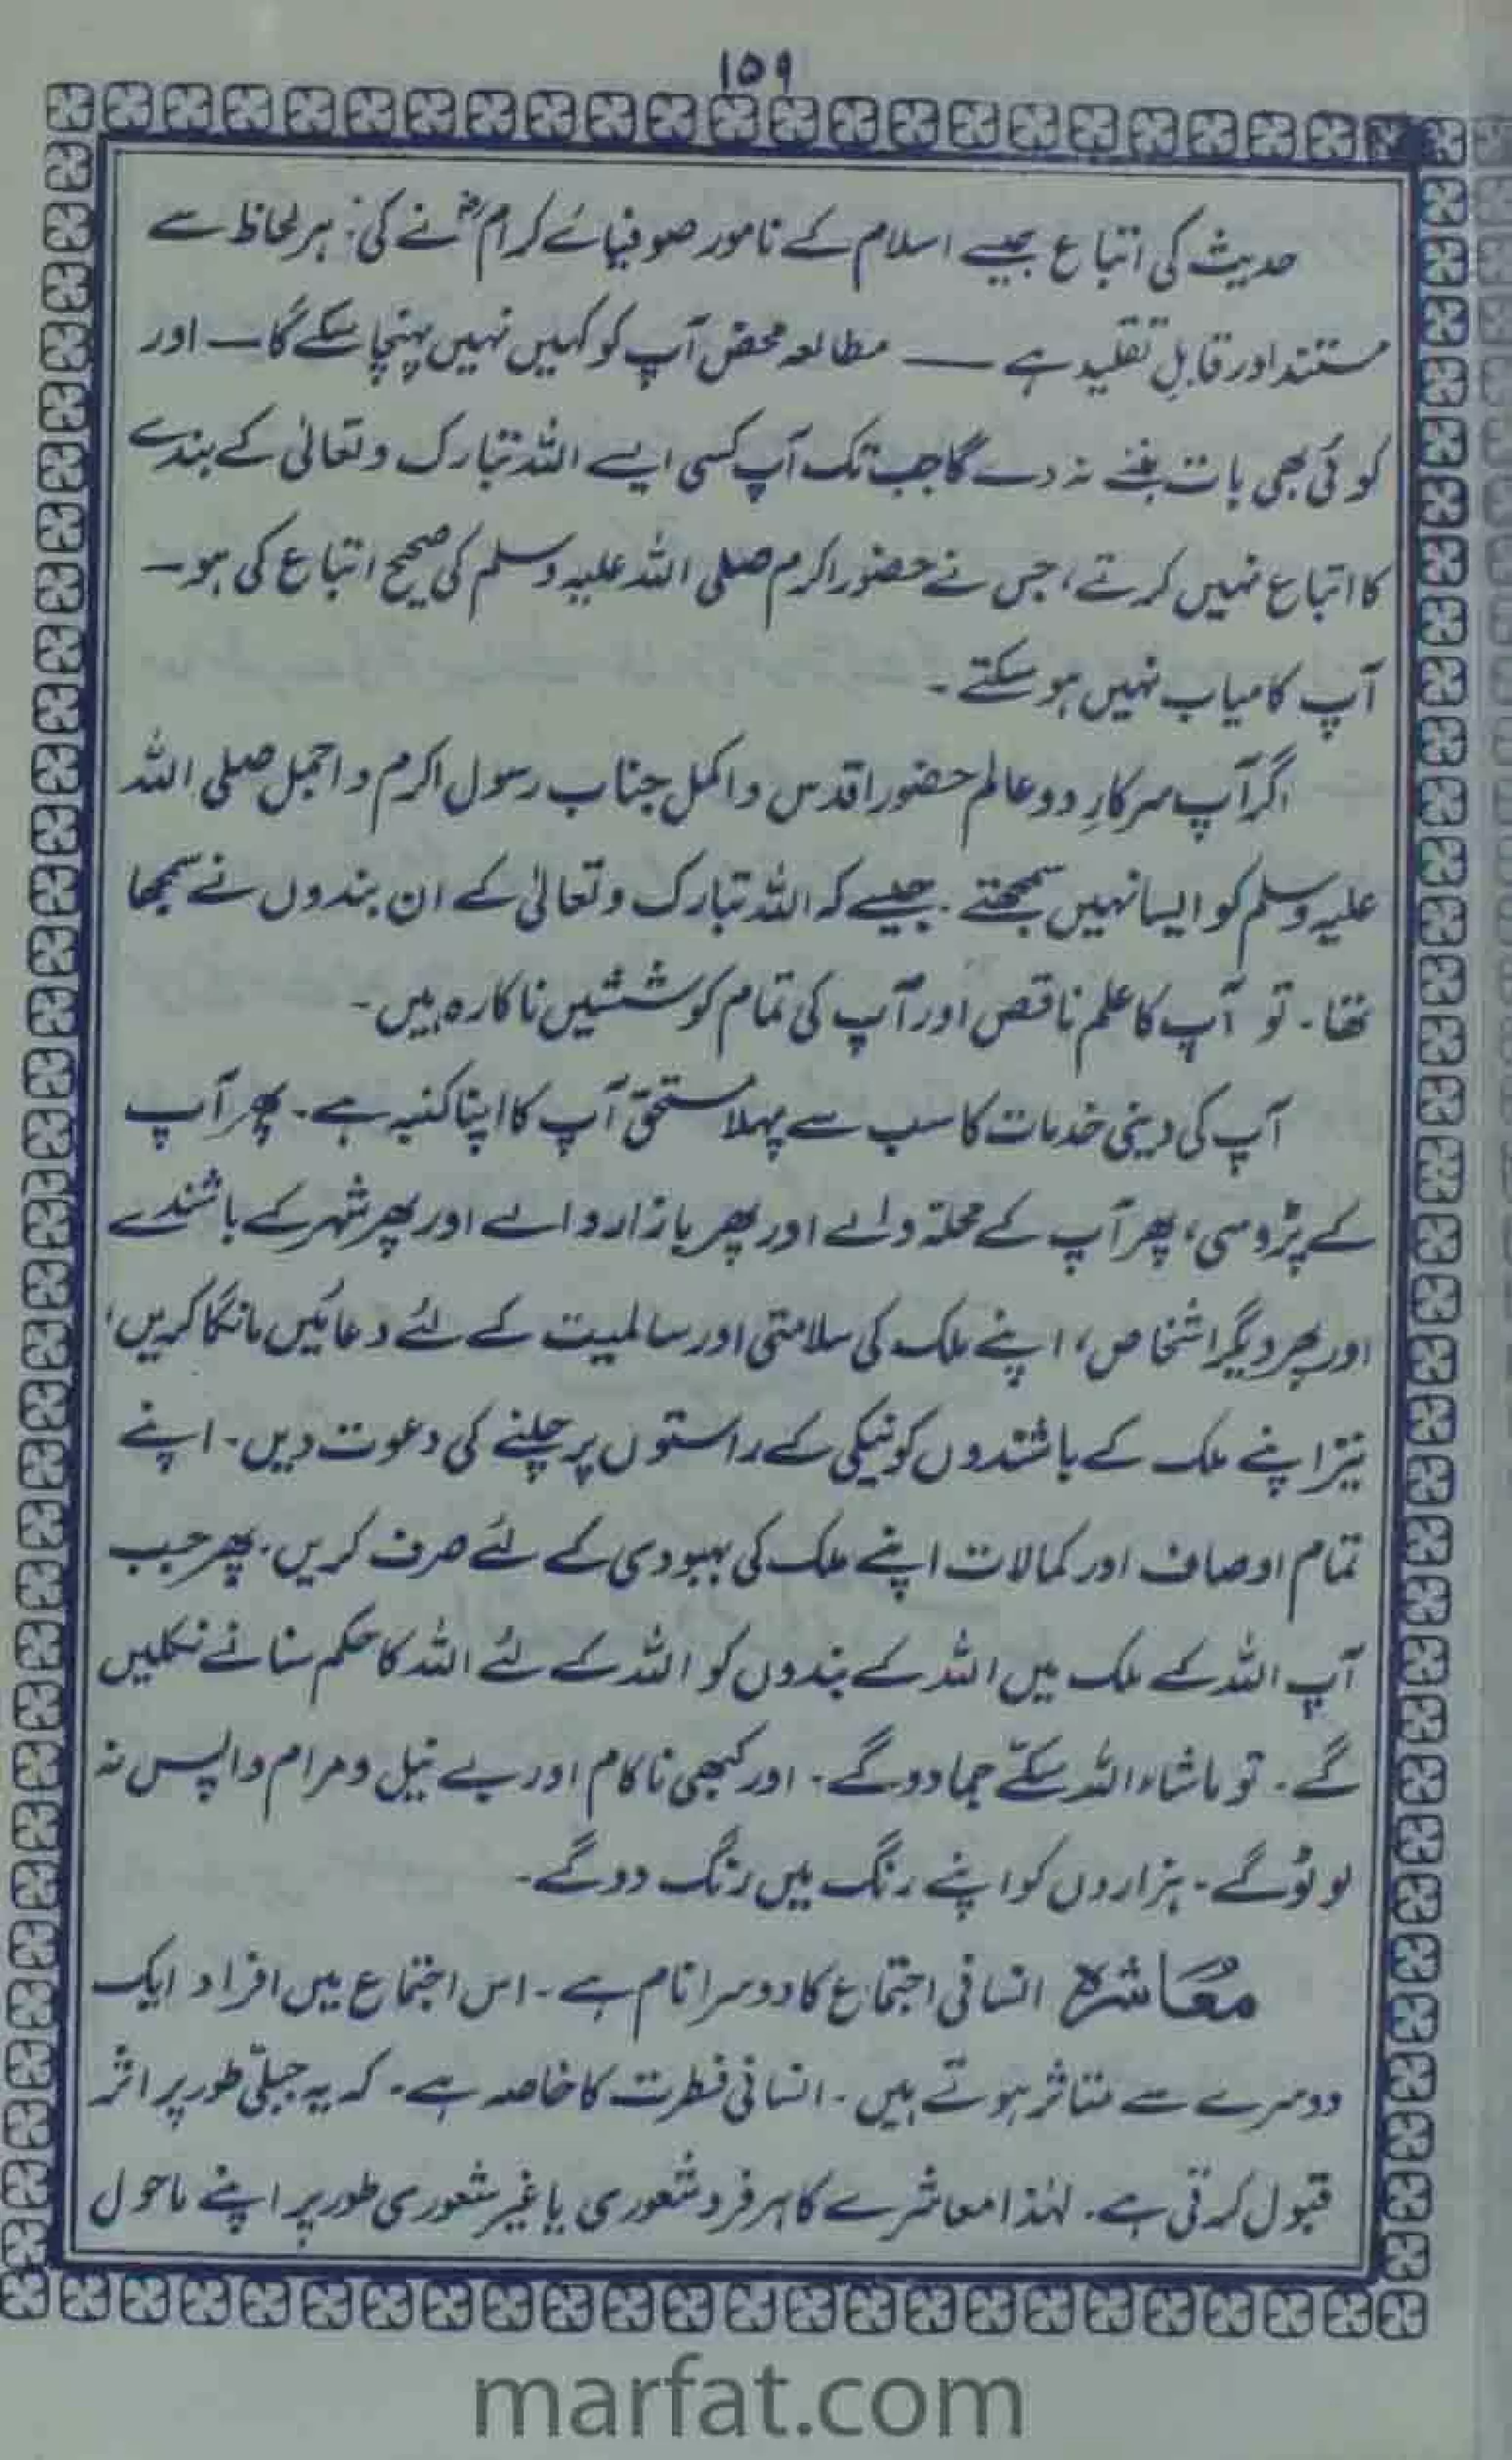 ۱۵۹
حدیث کی اتباع جیسے اسلام کے نامور صوفیائے کرامؒ نے کی: ہر لحاظ سے
مستند اور قابلِ تقلید ہے ــــ مطالعہ محض آپ کو کہیں نہیں پہنچا سکے گا ـ اور
کوئی بھی بات بننے نہ دے گا جب تک آپ کسی ایسے اللہ تبارک و تعالیٰ کے بندے
کا اتباع نہیں کرتے، جس نے حضور اکرم صلی اللہ علیہ وسلم کی صحیح اتباع کی ہو ـ
آپ کامیاب نہیں ہو سکتے ۔
اگر آپ سرکارِ دو عالم حضور اقدس و اکمل جناب رسول اکرم و اجمل صلی اللہ
علیہ وسلم کو ایسا نہیں سمجھتے ۔ جیسے کہ اللہ تبارک و تعالیٰ کے ان بندوں نے سمجھا
تھا ۔ تو آپ کا علم ناقص اور آپ کی تمام کوششیں ناکارہ ہیں ۔
آپ کی دینی خدمات کا سب سے پہلا مستحق آپ کا اپنا کنبہ ہے ۔ پھر آپ
کے پڑوسی، پھر آپ کے محلہ والے اور پھر بازار والے اور پھر شہر کے باشندے
اور پھر دیگر اشخاص، اپنے ملک کی سلامتی اور سالمیت کے لئے دعائیں مانگا کریں،
نیز اپنے ملک کے باشندوں کو نیکی کے راستوں پر چلنے کی دعوت دیں ۔ اپنے
تمام اوصاف اور کمالات اپنے ملک کی بہبودی کے لئے صرف کریں ۔ پھر جب
آپ اللہ کے ملک میں اللہ کے بندوں کو اللہ کے لئے اللہ کا حکم سنانے نکلیں
گے ۔ تو ماشاء اللہ سکّے جما دو گے ۔ اور کبھی ناکام اور بے نیل و مرام واپس نہ
لوٹو گے ۔ ہزاروں کو اپنے رنگ میں رنگ دو گے ۔
معاشرہ انسانی اجتماع کا دوسرا نام ہے ۔ اس اجتماع میں افراد ایک
دوسرے سے متاثر ہوتے ہیں ۔ انسانی فطرت کا خاصہ ہے ۔ کہ یہ جبلّی طور پر اثر
قبول کرتی ہے ۔ لہٰذا معاشرے کا ہر فرد شعوری یا غیر شعوری طور پر اپنے ماحول
marfat.com